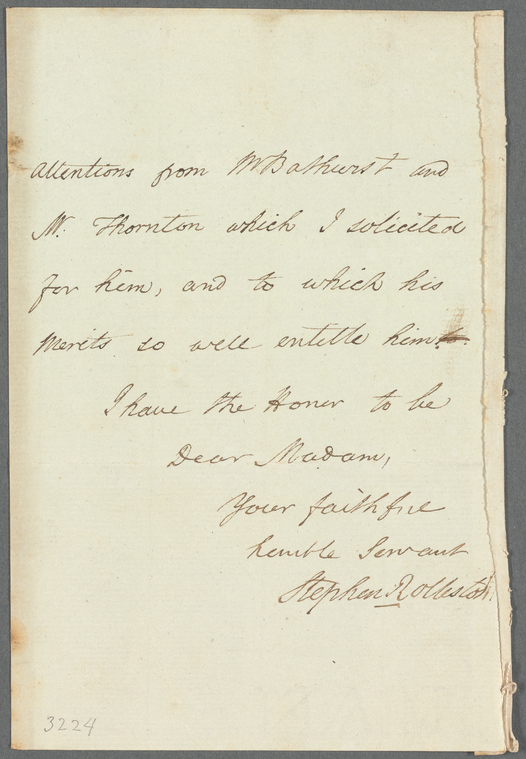 attentions from Mr Bathurst and
Mr. Thornton which I solicited
for him, and to which his
Merits so well entitle him.
I have the Honor to be
Dear Madam,
Your faithful
humble Servant
Stephen Rolleston.
3224